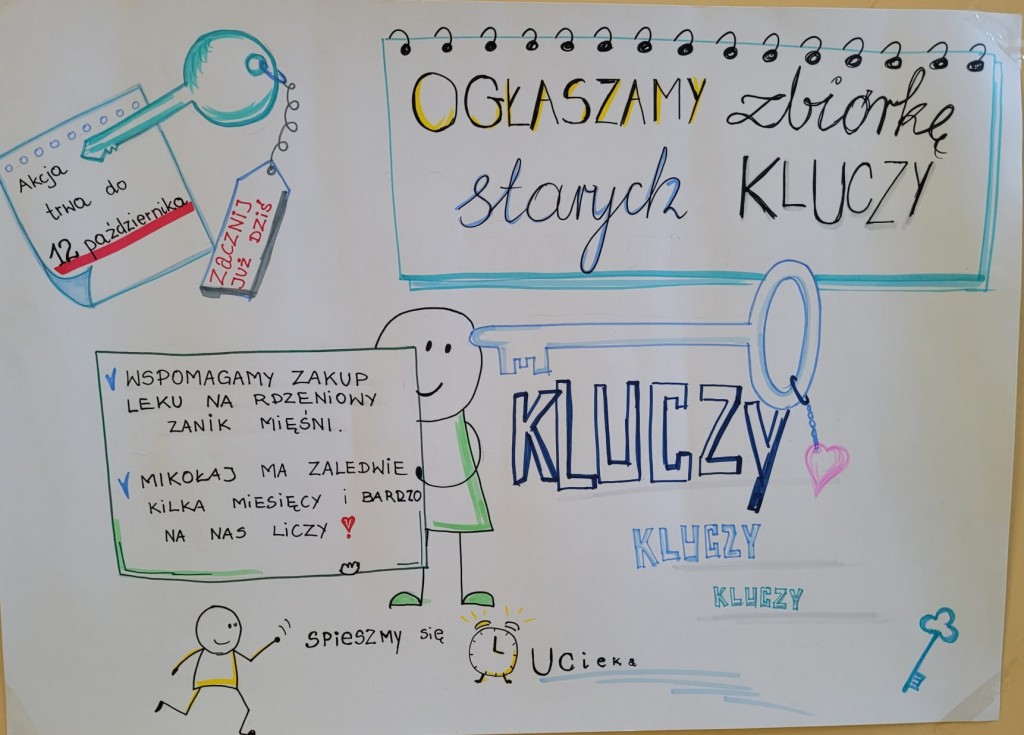 Akcja
trwa do
12 października
ZACZNIJ
JUŻ DZIŚ
OGŁASZAMY zbiórkę
starych KLUCZY
WSPOMAGAMY ZAKUP
LEKU NA RDZENIOWY
ZANIK MIĘŚNI.
MIKOŁAJ MA ZALEDWIE
KILKA MIESIĘCY i BARDZO
NA NAS LICZY!
KLUCZY
KLUCZY
KLUCZY
SPIESZMY się
Ucieka